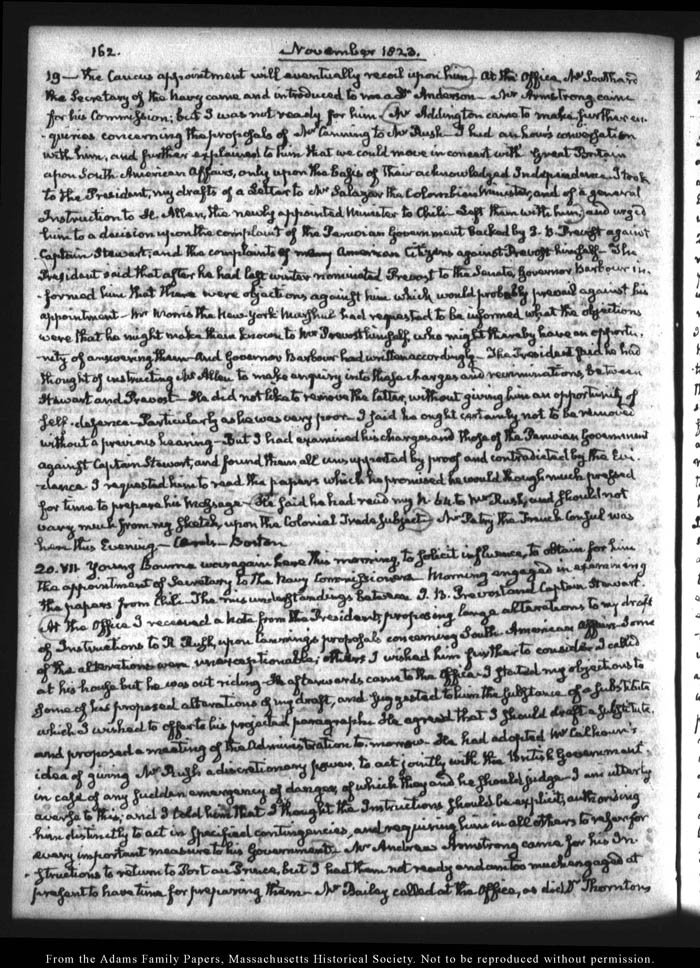 162.
November 1823.
19 — the Caucus appointment will eventually recoil upon him — At the Office, Mr Southard
the Secretary of the Navy came and introduced to me a Dr Anderson — Mr Armstrong came
for his Commission; but I was not ready for him. Mr Addington came to make further en-
-quiries concerning the proposals of Mr Canning to Mr Rush. I had an hour's conversation
with him, and further explained to him that we could move in concert with Great Britain
upon South American Affairs, only upon the basis of their acknowledged Independence. I took
to the President, my drafts of a Letter to Mr Salazar the Colombian Minister, and of a general
Instruction to H. Allen, the newly appointed Minister to Chili. Left them with him; and urged
him to a decision upon the complaint of the Peruvian Government backed by J. B. Prevost against
Captain Stewart; and the complaints of many American Citizens against Prevost himself. The
President said that after he had last winter nominated Prevost to the Senate, Governor Barbour in-
-formed him that there were objections against him which would probably prevail against his
appointment — Mr Morris the New-York Marshal had requested to be informed what the objections
were that he might make them known to Mr Prevost himself, who might thereby have an opportu-
-nity of answering them — And Governor Barbour had written accordingly — The President said he had
thought of instructing Mr Allen to make enquiry into these charges and recriminations between
Stewart and Prevost — He did not like to remove the latter, without giving him an opportunity of
self-defence — Particularly as he was very poor. I said he ought certainly not to be removed
without a previous hearing — But I had examined his charges and those of the Peruvian Government
against Captain Stewart, and found them all unsupported by proof and contradicted by the Evi-
-dence. I requested him to read the papers which he promised he would though much pressed
for time to prepare his Message — He said he had read my N. 64 to Mr Rush, and should not
vary much from my sketch, upon the Colonial Trade subject. Mr Petry the French Consul was
here this Evening — Cards — Boston
20. VII. Young Bourne was again here this morning to solicit influence, to obtain for him
the appointment of Secretary to the Navy Commissioners. Morning engaged in examining
the papers from Chili. The misunderstandings between J. B. Prevost and Captain Stewart.
At the Office I received a Note from the President, proposing large alterations to my draft
of Instructions to R. Rush, upon Canning's proposals concerning South American affairs. Some
of the alterations were unexceptionable; others I wished him further to consider. I called
at his house but he was out riding — He afterwards came to the Office. I stated my objections to
some of his proposed alterations of my draft, and suggested to him the substance of a substitute
which I wished to offer to his projected paragraphs. He agreed that I should draft a substitute
and proposed a meeting of the Administration to-morrow. He had adopted Mr Calhoun's
idea of giving Mr Rush a discretionary power, to act jointly with the British Government,
in case of any sudden emergency of danger, of which they and he should judge — I am utterly
averse to this; and I told him that I thought the Instructions should be explicit, authorising
him distinctly to act in specified contingencies, and requiring him in all others to refer for
every important measure to his Government. Mr Andrew Armstrong came for his In-
-structions to return to Port au Prince, but I had them not ready and am too much engaged at
present to have time for preparing them — Mr Bailey called at the Office, as did Dr Thornton
From the Adams Family Papers, Massachusetts Historical Society. Not to be reproduced without permission.